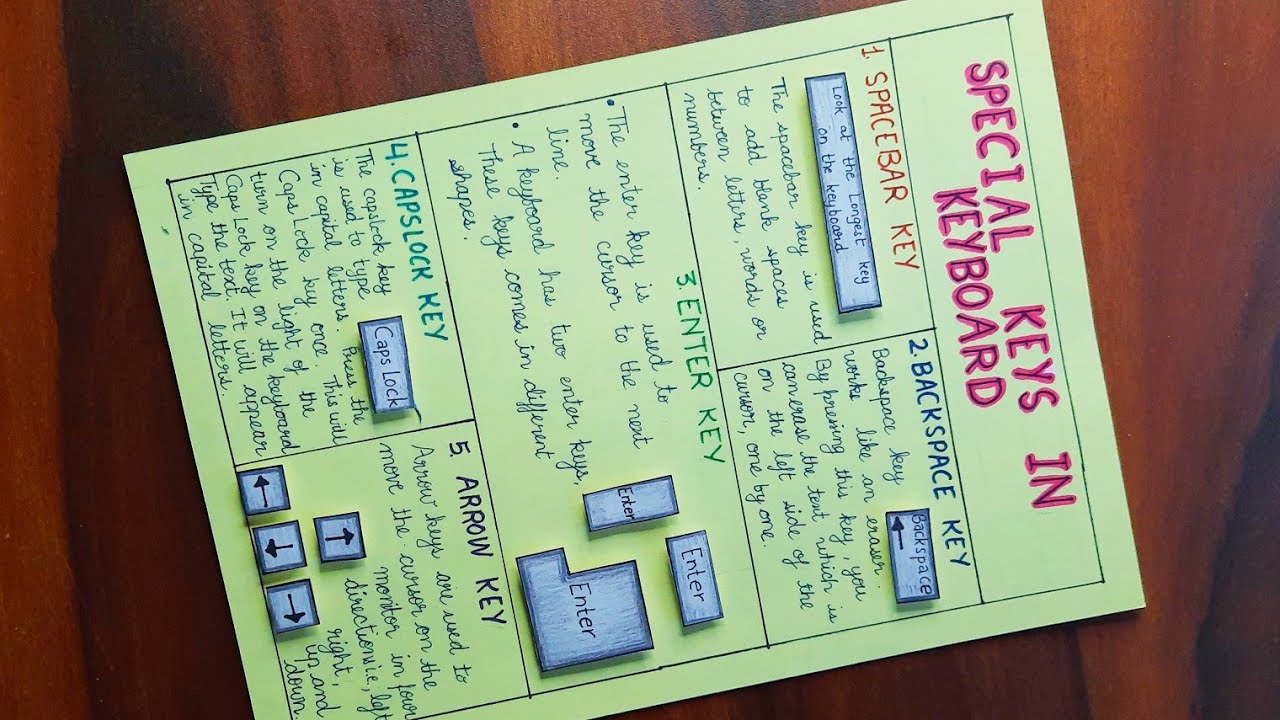 SPECIAL KEYS IN
KEYBOARD
1. SPACEBAR KEY
Look at the Longest key
on the keyboard
The spacebar key is used
to add blank spaces
between letters, words or
numbers.
2. BACKSPACE KEY
Backspace
Backspace key
works like an eraser.
By pressing this key, you
can erase the text which is
on the left side of the
cursor, one by one.
3. ENTER KEY
• The enter key is used to
move the cursor to the next
line.
• A keyboard has two enter keys,
These keys comes in different
shapes.
Enter
Enter
Enter
4. CAPSLOCK KEY
The capslock key
is used to type
in capital letters. Press the
Caps Lock key once. This will
turn on the light of the
Caps Lock key on the keyboard
Type the text, It will appear
in capital letters.
Caps Lock
5. ARROW KEY
Arrow keys are used to
move the cursor on the
monitor in four
directions i.e, left
right,
up and
down.